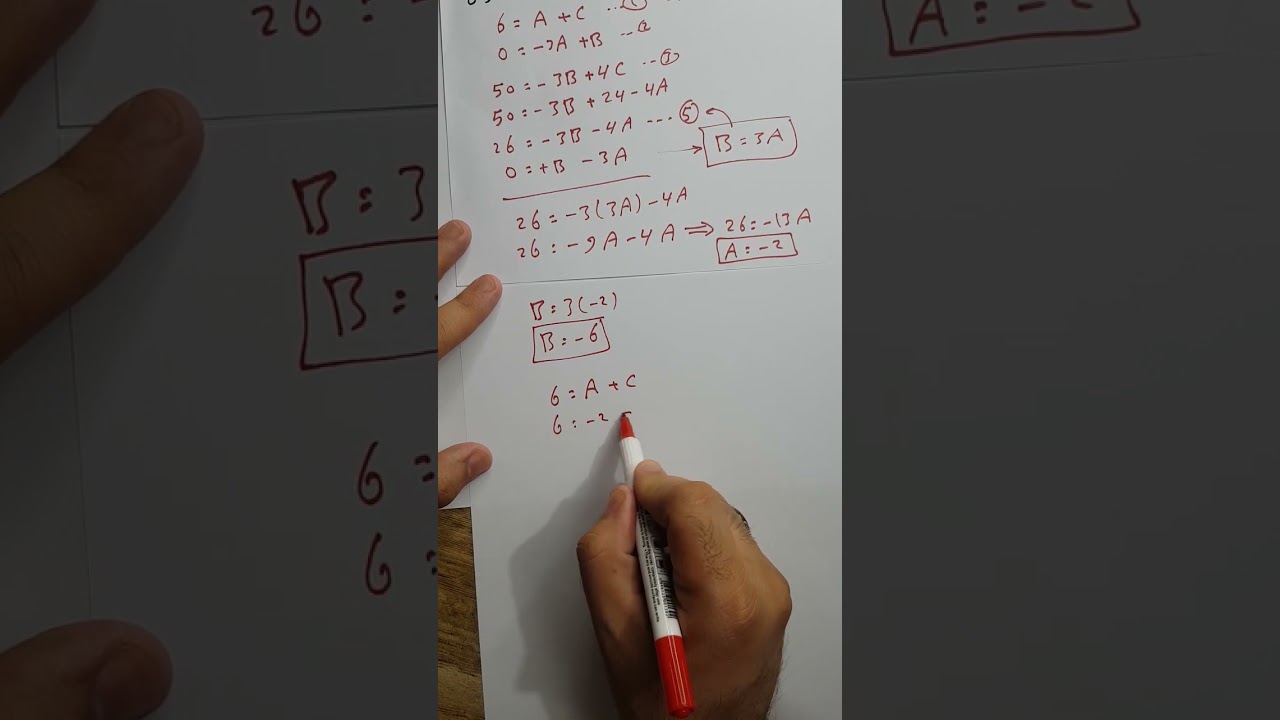 6 = A + C ... ①
0 = -3A + B ... ②
50 = -3B + 4C ... ③
50 = -3B + 24 - 4A
26 = -3B - 4A ... ⑤
0 = +B - 3A → B = 3A
26 = -3(3A) - 4A
26 = -9A - 4A ⇒ 26 = -13A
A = -2
B = 3(-2)
B = -6
6 = A + C
6 = -2